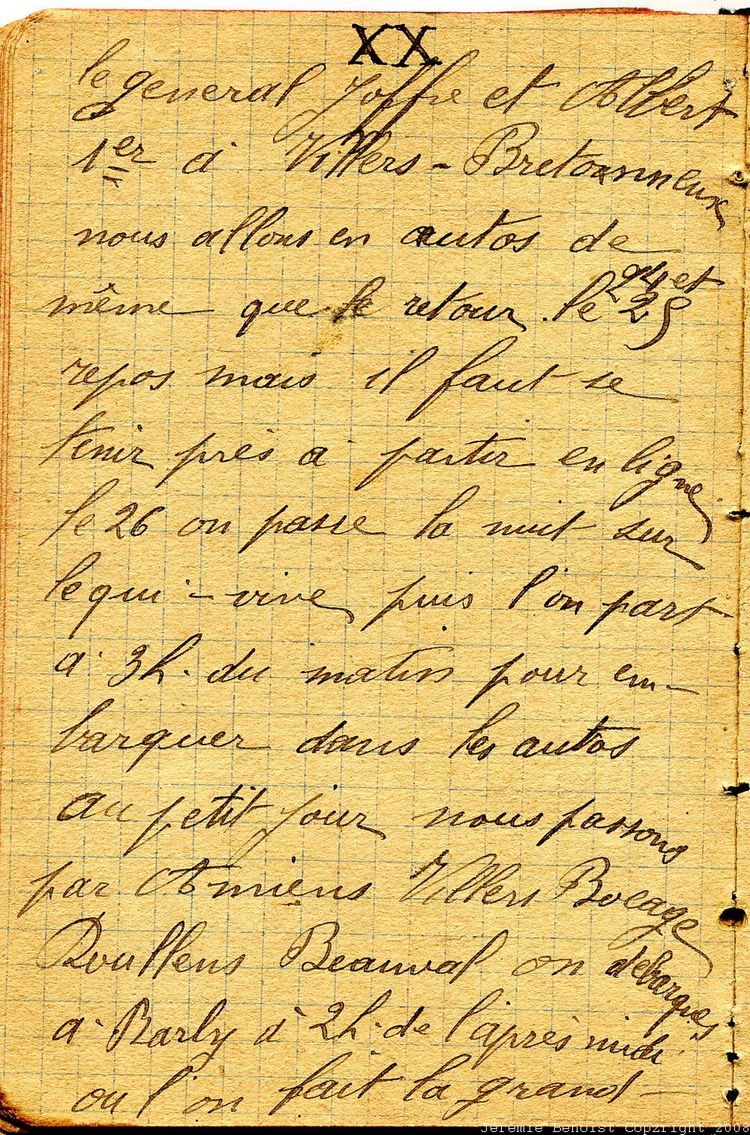 XX
le general Joffre et Albert
1er à Villers-Bretonnneux
nous allons en autos de
même que le retour. le 24 et 25
repos mais il faut se
tenir près à partir en ligne
le 26 on passe la nuit sur
le qui-vive, puis l'on part
a 3h. du matin pour em-
barquer dans les autos
au petit jour nous passons
par Amiens Villers Bocage
Doullens Beauval on débarques
a Barly à 2h. de l'après midi
ou l'on fait la grand-
Jeremie Benoist Copyright 2008